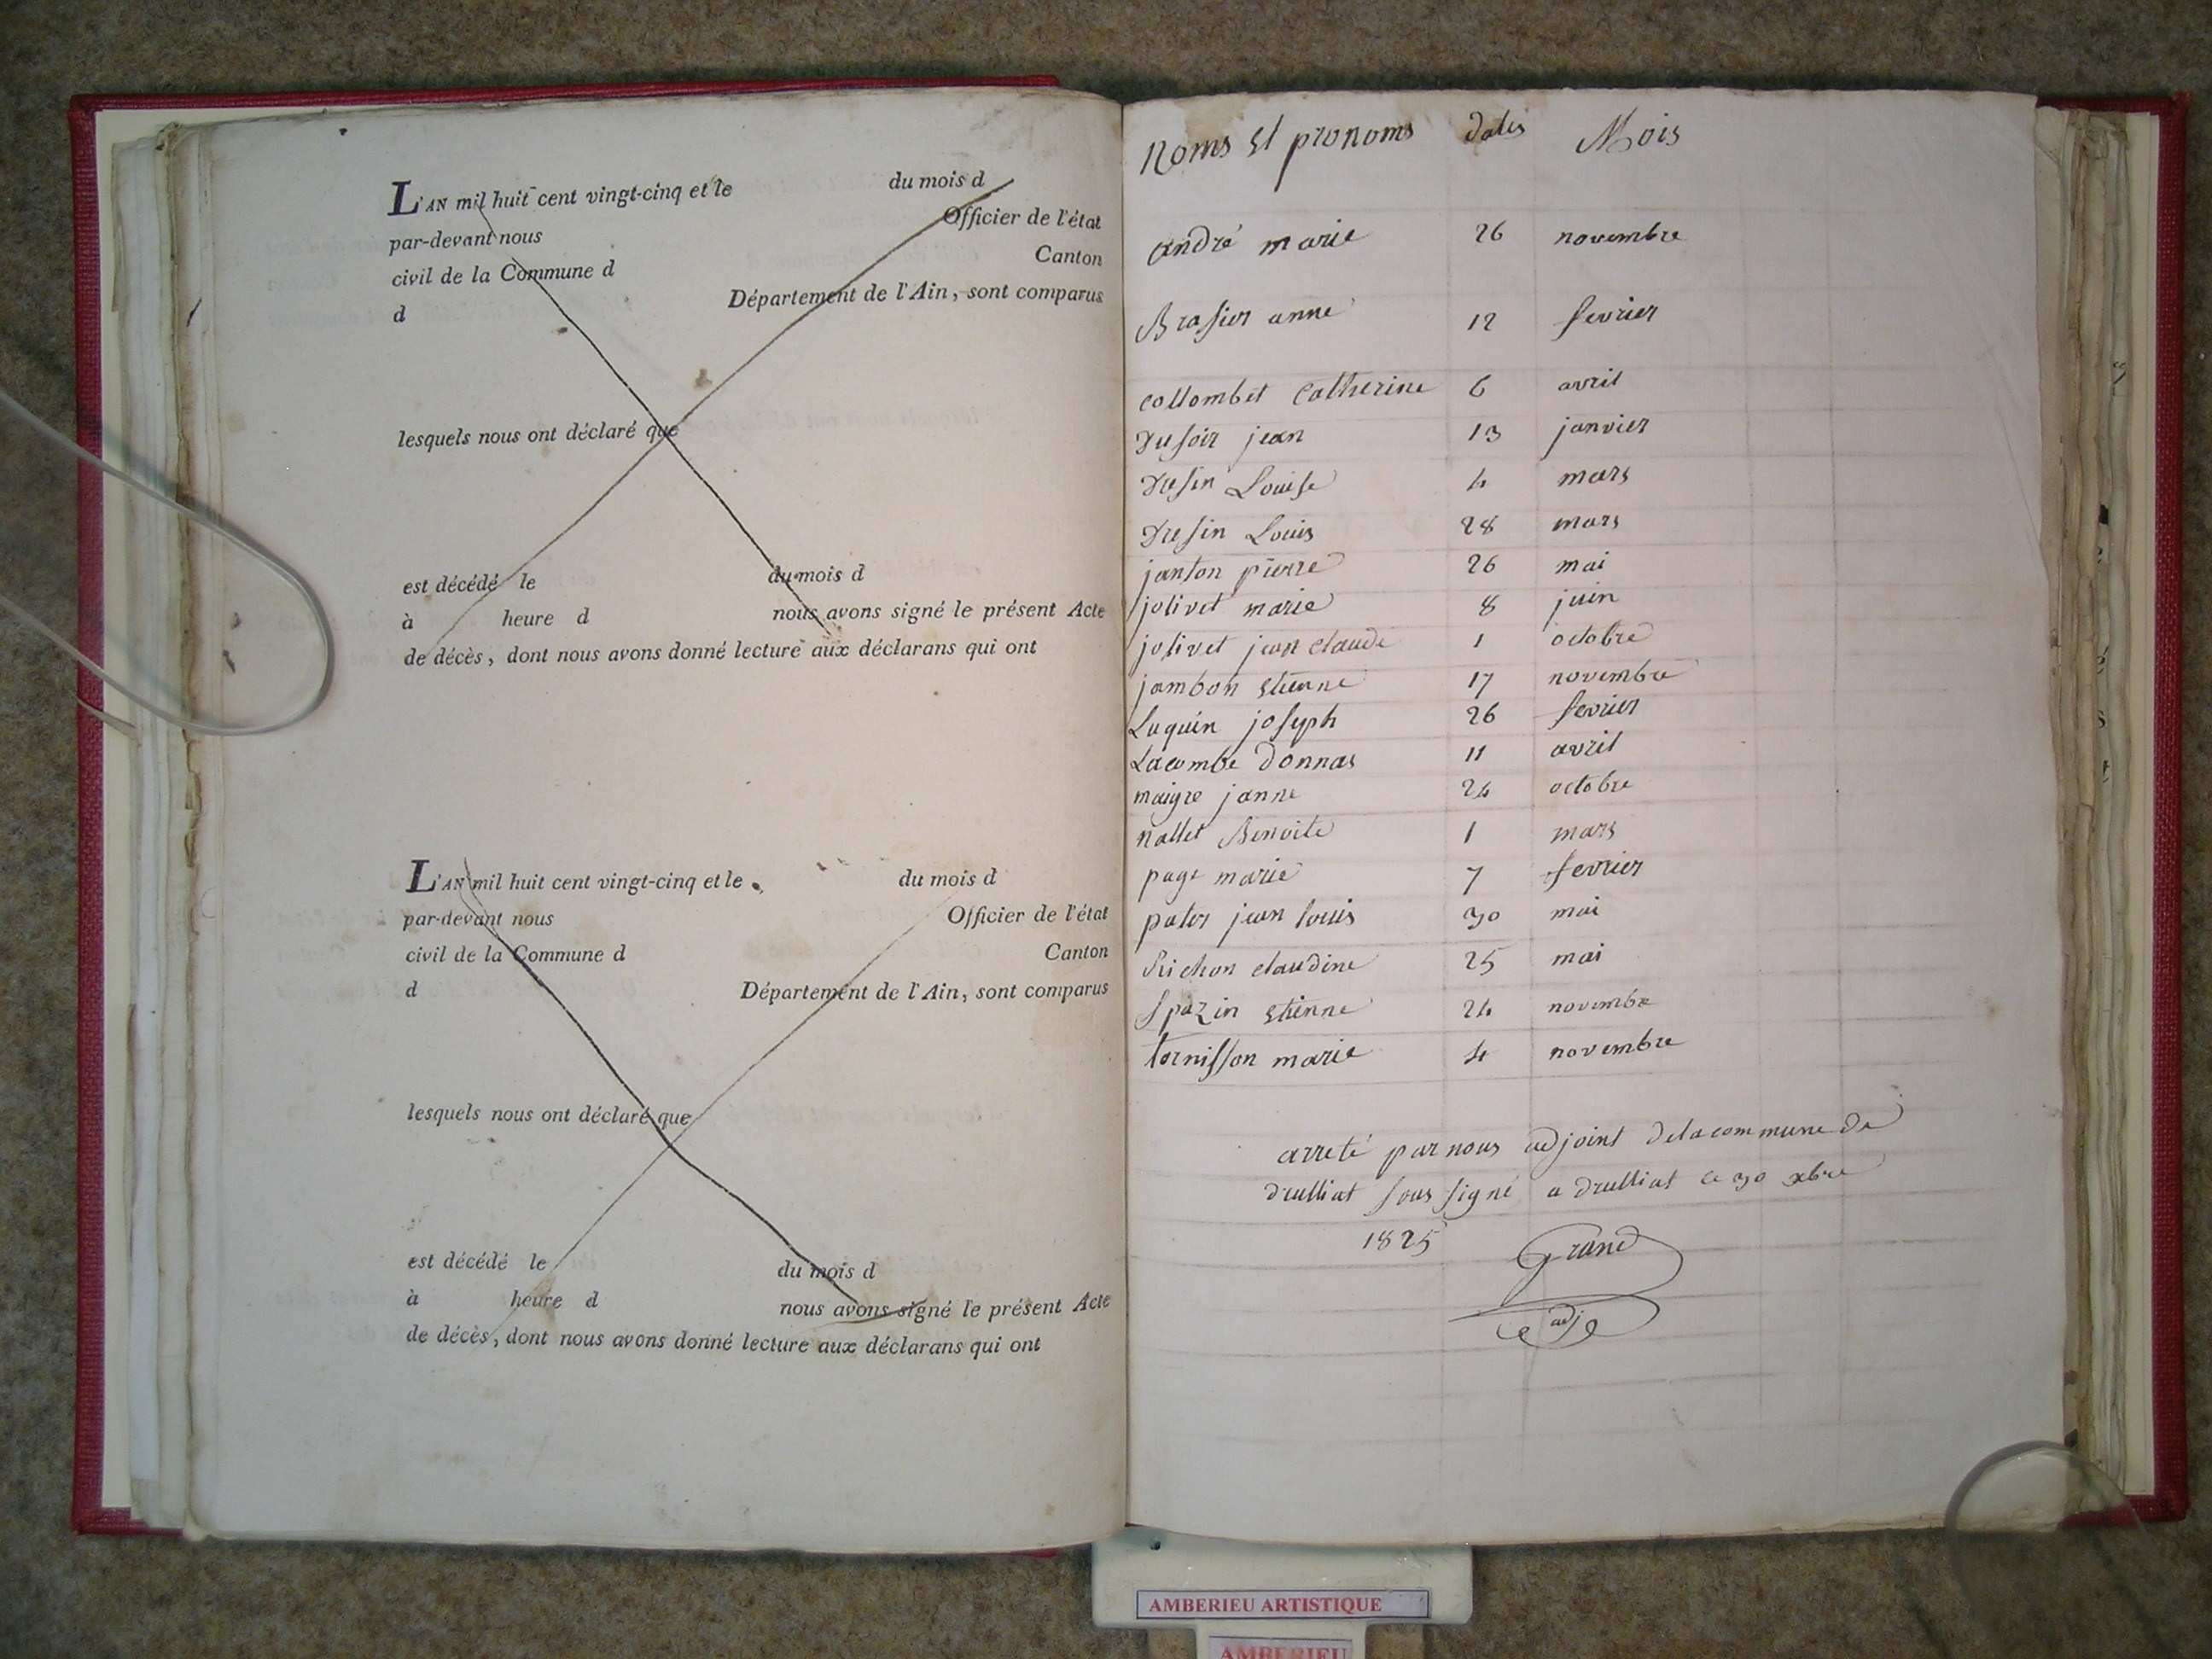 L'AN mil huit cent vingt-cinq et le du mois d
par-devant nous Officier de l'état
civil de la Commune d Canton
d Département de l'Ain, sont comparus
lesquels nous ont déclaré que
est décédé le du mois d
à heure d nous avons signé le présent Acte
de décès, dont nous avons donné lecture aux déclarans qui ont
L'AN mil huit cent vingt-cinq et le du mois d
par-devant nous Officier de l'état
civil de la Commune d Canton
d Département de l'Ain, sont comparus
lesquels nous ont déclaré que
est décédé le du mois d
à heure d nous avons signé le présent Acte
de décès, dont nous avons donné lecture aux déclarans qui ont
Noms et pronoms dates Mois
andré marie 26 novembre
Brasier anne 12 fevrier
collombet Catherine 6 avril
jean 13 janvier
Louise 4 mars
Louis 28 mars
janton pierre 26 mai
jolivet marie 8 juin
jolivet jean claude 1 octobre
jambon etienne 17 novembre
Luquin joseph 26 fevrier
Lacombe Donnas 11 avril
maigre janne 24 octobre
nallet Benoite 1 mars
page marie 7 fevrier
pater jean louis 30 mai
Richon claudine 25 mai
Spazin etienne 24 novembre
tornisson marie 4 novembre
arreté par nous adjoint de la commune de
druilliat sous signé a druilliat ce 30 xbre
1825
Grand
adj
AMBERIEU ARTISTIQUE
AMBERIEU